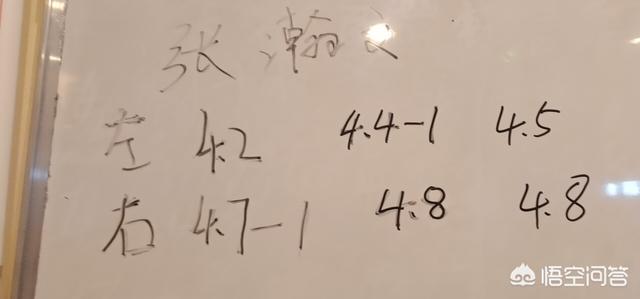 张瀚文
左 4.2 4.4-1 4.5
右 4.7-1 4.8 4.8
悟空问答